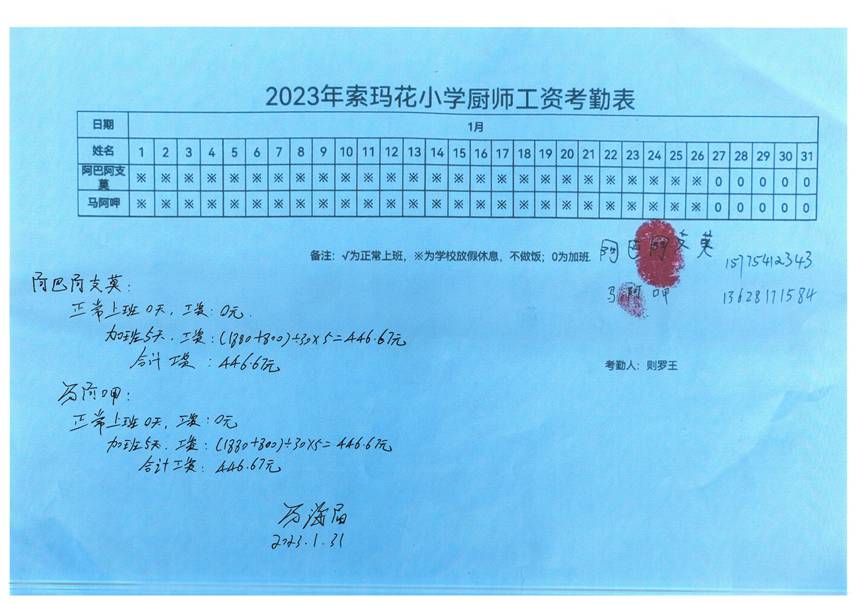 2023年索玛花小学厨师工资考勤表
日期 1月
姓名 1 2 3 4 5 6 7 8 9 10 11 12 13 14 15 16 17 18 19 20 21 22 23 24 25 26 27 28 29 30 31
阿巴阿支莫 ※ ※ ※ ※ ※ ※ ※ ※ ※ ※ ※ ※ ※ ※ ※ ※ ※ ※ ※ ※ ※ ※ ※ ※ ※ ※ 0 0 0 0 0
马阿呷 ※ ※ ※ ※ ※ ※ ※ ※ ※ ※ ※ ※ ※ ※ ※ ※ ※ ※ ※ ※ ※ ※ ※ ※ ※ ※ 0 0 0 0 0
备注：√为正常上班，※为学校放假休息，不做饭；0为加班
阿巴阿支莫 15775412343
马阿呷 13628171584
考勤人：则罗王
阿巴阿支莫：
正常上班0天，工资：0元.
加班5天，工资：(1880+800)÷30×5=446.67元
合计工资：446.67元
马阿呷：
正常上班0天，工资：0元
加班5天，工资：(1880+800)÷30×5=446.67元
合计工资：446.67元
2023.1.31